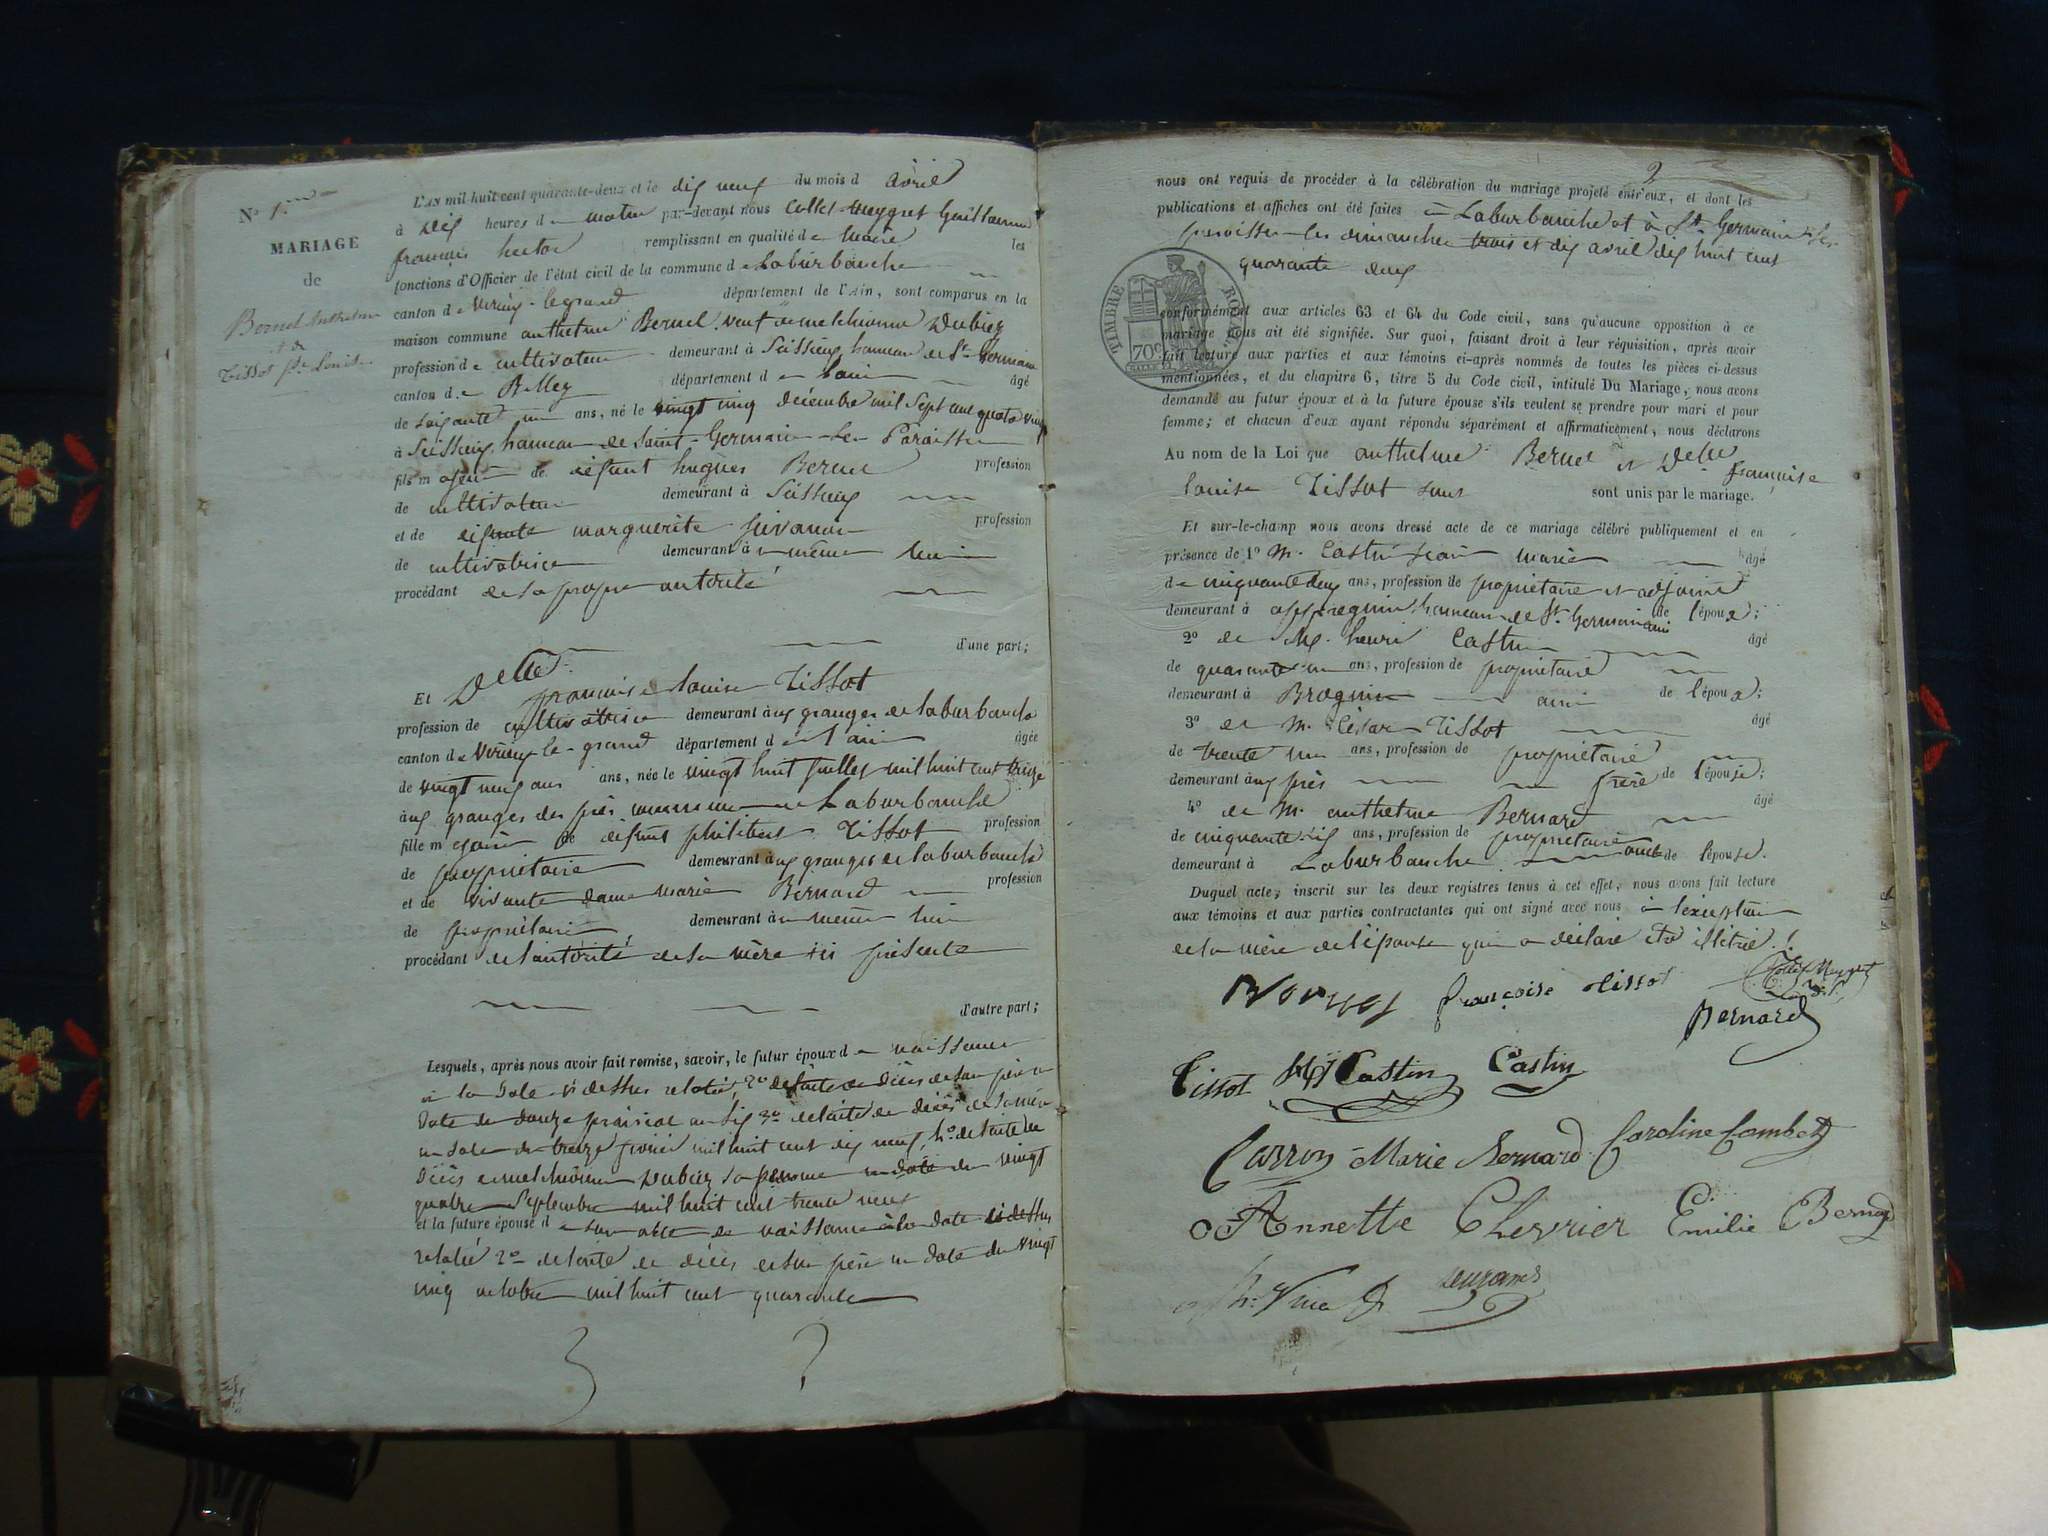 N° 1
MARIAGE
de
Bernel Anthelme
et de
Tissot fse Louise
L'AN mil huit cent quarante-deux et le dix neuf du mois d avril
à dix heures de matin par-devant nous Collet Meygret Guillaume
françois hector remplissant en qualité de Maire les
fonctions d'Officier de l'état civil de la commune de Laburbanche
canton de Virieu-legrand département de l'Ain, sont comparus en la
maison commune anthelme Bernel veuf de melchionne Dubiez
profession de cultivateur demeurant à Seissieu hameau de St Germain
canton de Belley département de lain âgé
de soixante un ans, né le vingt cinq décembre mil sept cent quatre vingt
à Seissieu, hameau de Saint-Germain-les Paroisses
fils majeur de défunt hugues Bernel profession
de cultivateur demeurant à Seissieu
et de défunte marguerite profession
de cultivatrice demeurant au même lieu
procédant de sa propre autorité
d'une part;
Et Delle françoise louise Tissot
profession de cultivatrice demeurant aux granges de laburbanche
canton de Virieu-le-grand département de l'ain âgée
de vingt neuf ans ans, née le vingt huit juillet mil huit cent treize
aux granges des près commune de Laburbanche
fille majeure de défunt philibert Tissot profession
de propriétaire demeurant aux granges de laburbanche
et de vivante dame marie Bernard profession
de propriétaire demeurant au même lieu
procédant de l'autorité de sa mère ici présente
d'autre part;
Lesquels, après nous avoir fait remise, savoir, le futur époux de naissance
à la date ci dessus relatée, 2° de l'acte de décès de son père en
date du douze prairial an six 3° de l'acte de décès de sa mère
en date du treize février mil huit cent dix neuf, 4° de l'acte de
décès de melchionne Dubiez sa femme en date du vingt
quatre Septembre mil huit cent trente neuf
et la future épouse de son acte de naissance à la date ci dessus
relatée 2° de l'acte de décès de son père en date du vingt
cinq octobre mil huit cent quarante
2
nous ont requis de procéder à la célébration du mariage projeté entr'eux, et dont les
publications et affiches ont été faites à Laburbanche et à St Germain-les-
paroisses les dimanches trois et dix avril dix huit cent
quarante deux
TIMBRE ROYAL
70c
conformément aux articles 63 et 64 du Code civil, sans qu'aucune opposition à ce
mariage nous ait été signifiée. Sur quoi, faisant droit à leur réquisition, après avoir
fait lecture aux parties et aux témoins ci-après nommés de toutes les pièces ci-dessus
mentionnées, et du chapitre 6, titre 5 du Code civil, intitulé Du Mariage, nous avons
demandé au futur époux et à la future épouse s'ils veulent se prendre pour mari et pour
femme; et chacun d'eux ayant répondu séparément et affirmativement, nous déclarons
Au nom de la Loi que anthelme Bernel et Delle françoise
louise Tissot sont unis par le mariage.
Et sur-le-champ nous avons dressé acte de ce mariage célébré publiquement et en
présence de 1° M. Castin jean marie âgé
de cinquante deux ans, profession de propriétaire et adjoint
demeurant à appregnin hameau de St Germain ami de l'époux;
2° de M. henri Castin âgé
de quarante un ans, profession de propriétaire
demeurant à Brognin ami de l'époux;
3° de M. César Tissot âgé
de trente un ans, profession de propriétaire
demeurant aux près frère de l'épouse;
4° de M. anthelme Bernard âgé
de cinquante six ans, profession de propriétaire
demeurant à Laburbanche oncle de l'épouse.
Duquel acte, inscrit sur les deux registres tenus à cet effet, nous avons fait lecture
aux témoins et aux parties contractantes qui ont signé avec nous à l'exception
de la mère de l'épouse qui a déclaré être illétrée.
françoise tissot Collet Meygret
Bernard
Tissot Castin Castin
Carron Marie Bernard Caroline Combet
Annette Chevrier Emilie Bernard